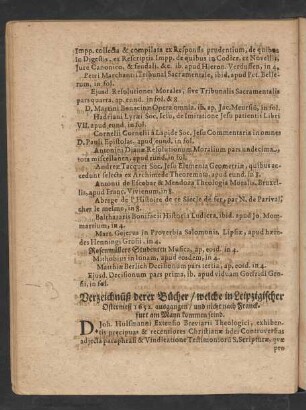 Impp. collecta & compilata ex Responsis prudentum, de quibus
in Digestis, ex Rescriptis Impp. de quibus in Codice, ex Novellis,
Jure Canonico, & feudali, &c. ib. apud Hieron. Verdussen, in 4.
Petri Marchantii Tribunal Sacramentale, ibid. apud Pet. Belle-
rum, in fol.
Ejusd. Resolutiones Morales, sive Tribunalis Sacramentalis
pars quarta, ap. eund. in fol. & 8
D. Maximi Bonacinæ Opera omnia, ib. ap. Jac. Meursiũ, in fol.
Hadriani Lyræi Soc. Jesu, de Imitatione Jesu patientis Libri
VII. apud eund. in fol.
Cornelii Cornelii à Lapide Soc. Jesu Commentaria in omnes
D. Pauli Epistolas, apud eund. in fol.
Antonini Dianæ Resolutionum Moralium pars undecima,
tota miscellanea, apud eund. in fol.
Andreæ Tacquet Soc. Jesu Elementa Geometriæ, quibus ac-
cedunt selecta ex Archimede Theoremata, apud eund. in 8.
Antonii de Escobar & Mendoza Theologia Moralis, Bruxel-
lis, apud Franc. Vivienum, in 8.
Abrege de l'Histoire de ce Siecle de fer, par N. de Parival,
chez le mesme, in 8.
Balthazaris Bonifacii Historia Ludicra, ibid. apud Jo. Mom-
martium, in 4.
Mart. Gejerus in Proverbia Salomonis, Lipsiæ, apud hære-
des Henningi Grosii, in 4.
Rosenmüllers Studenten Musica, ap. eosd. in 4.
Methodius in hunam, apud eosdem, in 4.
Matthiæ Berlich Decisionum pars tertia, ap. eosd. in 4.
Ejusd. Decisionum pars prima, ib. apud viduam Gotfridi Gros-
sii, in fol.
Verzeichnüß derer Bücher / welche in Leipzigischer
Ostermeß 1652. außgangen / und nicht nach Franck-
furt am Mayn kommen seind.
D. Joh. Hülsemanni Extensio Breviarii Theologici, exhiben-
tis præcipuas & recentiores Christianæ fidei Controversias
adjecta paraphrasi & Vindicatione Testimoniorũ S. Scripturæ, quæ